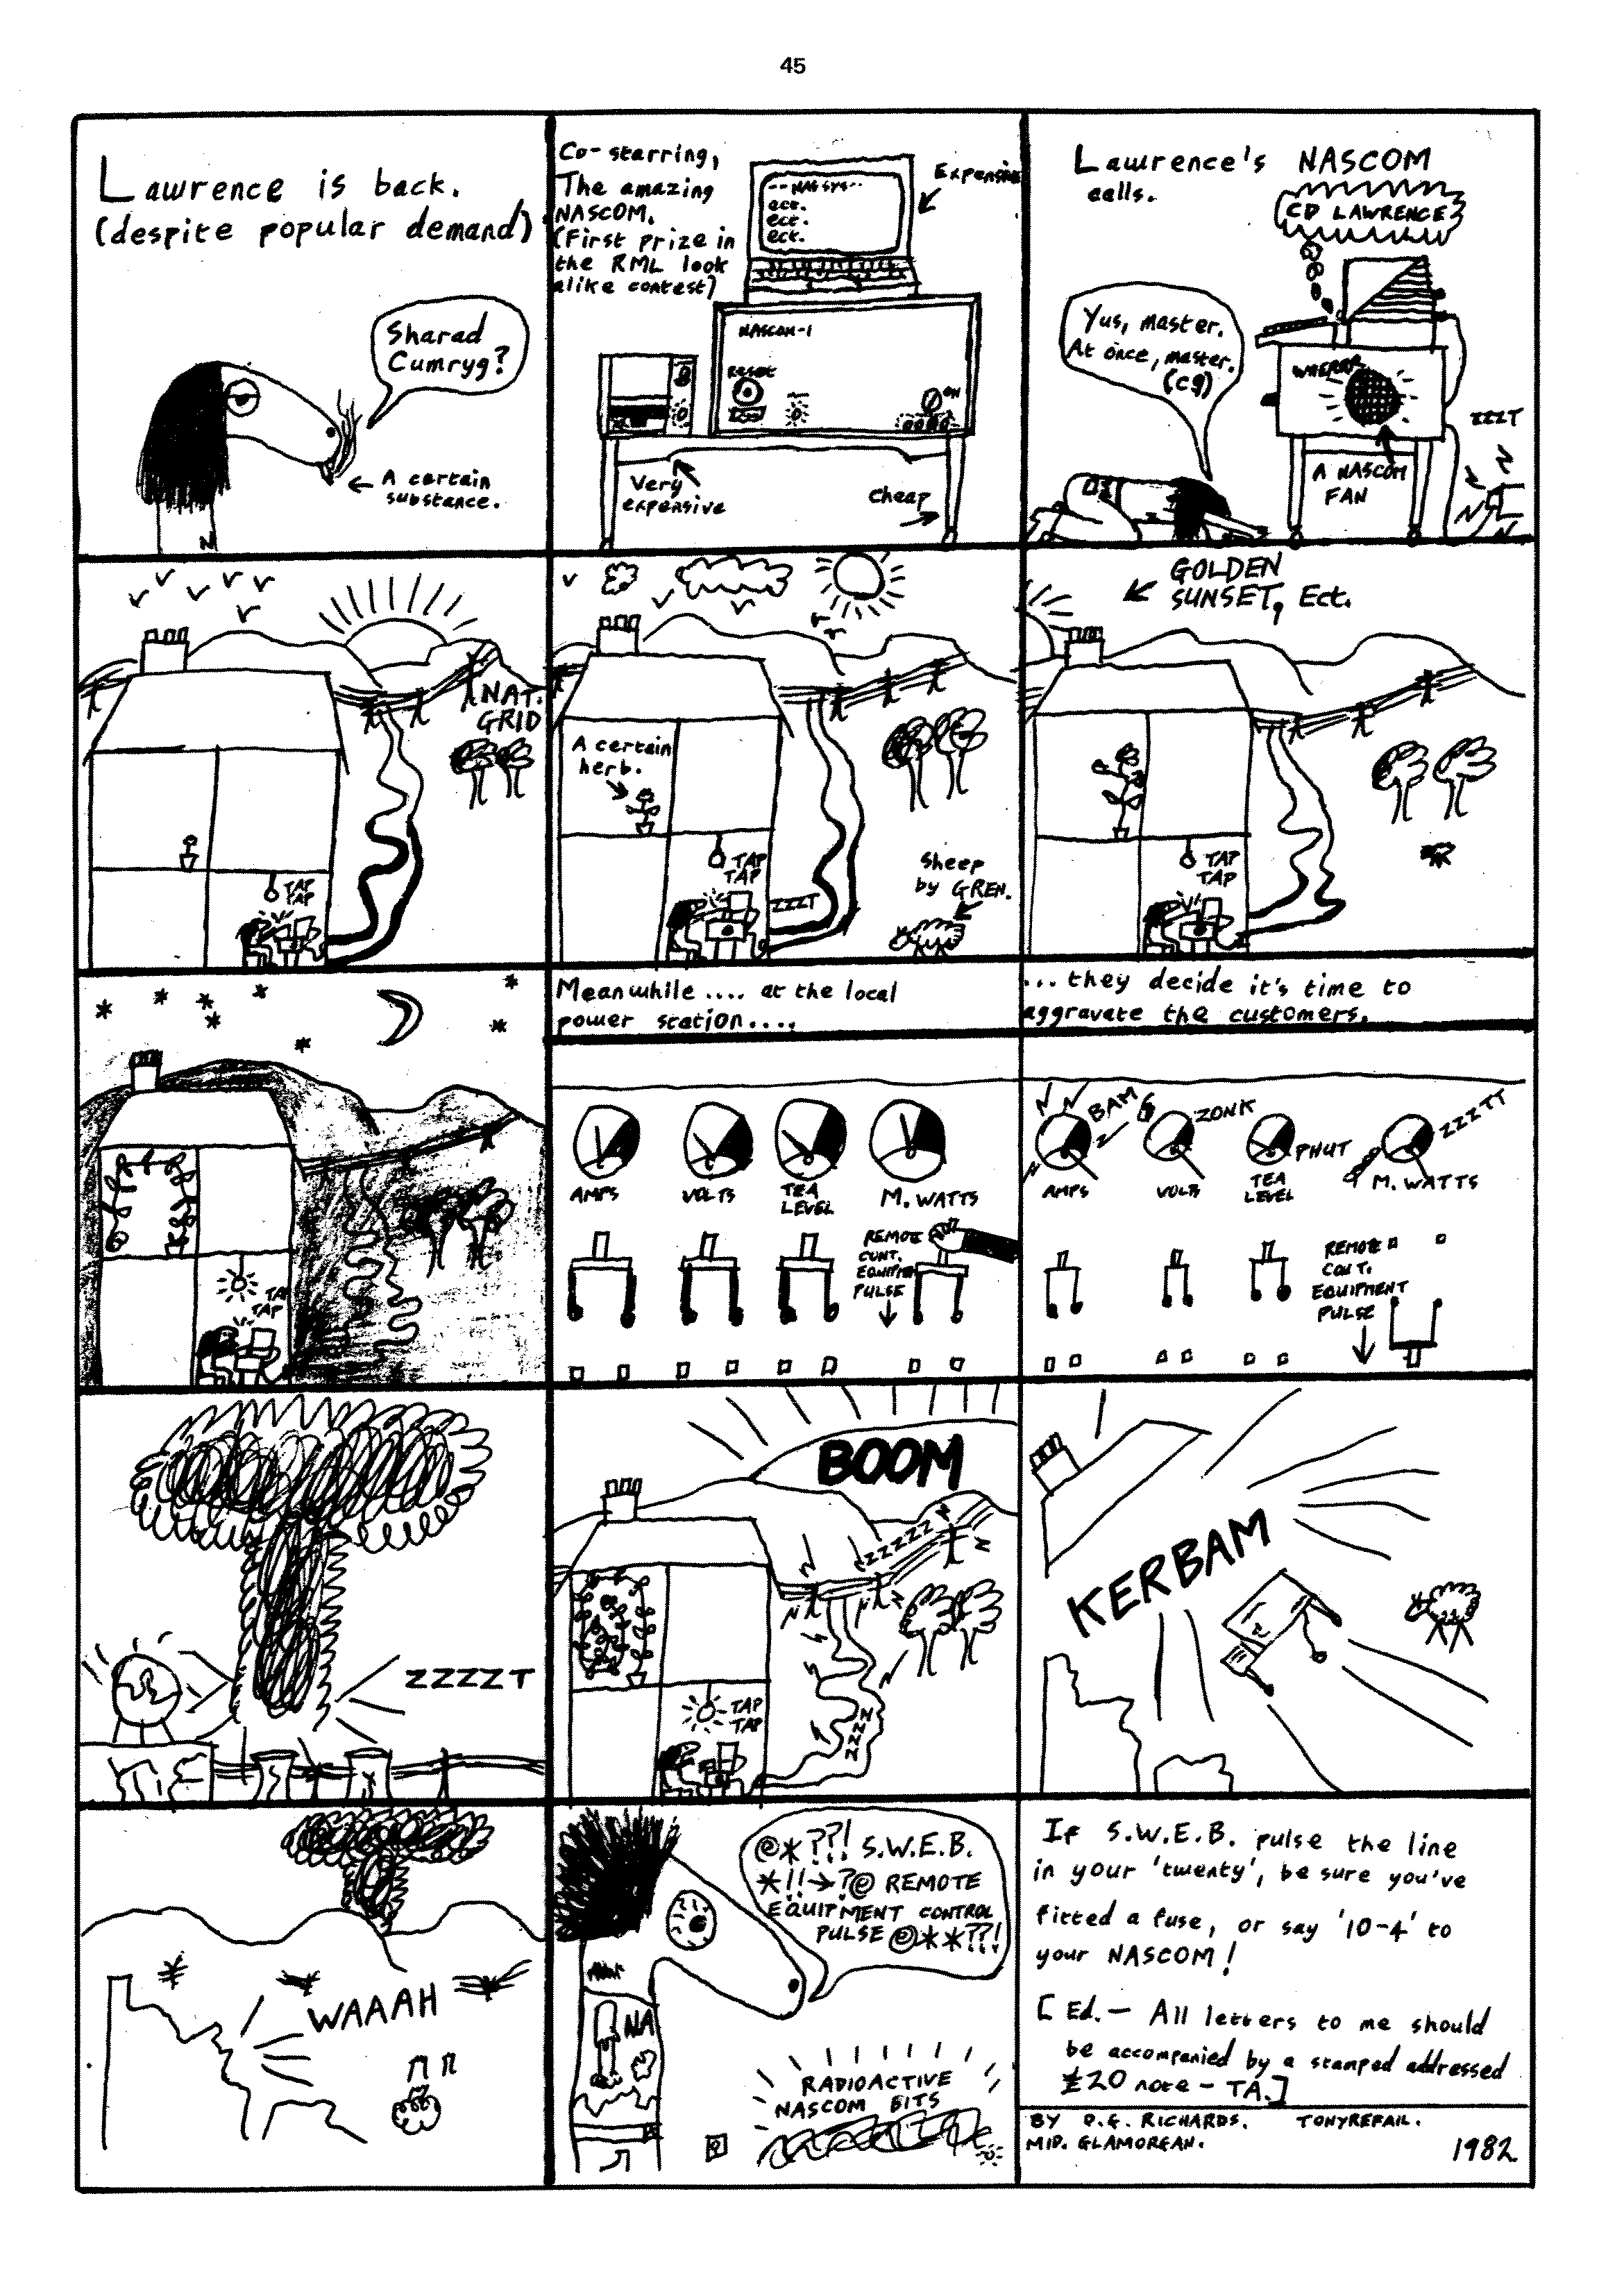 45
Lawrence is back.
(despite popular demand)
Sharad
Cumryg?
A certain
substance.
N
Co-starring,
The amazing
NASCOM.
(First prize in
the RML look
alike contest)
Expensive
--NASSYS--
ect.
ect.
ect.
NASCOM-1
RESET
ON
Very
expensive
Cheap
Lawrence's NASCOM
calls.
CD LAWRENCE
Yus, master.
At once, master.
(cg)
WHERRR
ZZZT
A NASCOM
FAN
NAT.
GRID
TAP
TAP
A certain
herb.
TAP
TAP
ZZZT
Sheep
by GREN.
GOLDEN
SUNSET, Ect.
TAP
TAP
TAP
TAP
Meanwhile.... at the local
power station....
AMPS
VOLTS
TEA
LEVEL
M. WATTS
REMOTE
CONT.
EQUIPM
PULSE
... they decide it's time to
aggravate the customers.
BAM
ZONK
PHUT
ZZZTT
AMPS
VOLTS
TEA
LEVEL
M. WATTS
REMOTE
CONT.
EQUIPMENT
PULSE
ZZZZT
BOOM
ZZZZZZ
TAP
TAP
NNNN
KERBAM
WAAAH
@*??! S.W.E.B.
*!!→?@ REMOTE
EQUIPMENT CONTROL
PULSE @**??!
NA
RADIOACTIVE
NASCOM BITS
If S.W.E.B. pulse the line
in your 'twenty', be sure you've
fitted a fuse, or say '10-4' to
your NASCOM!
[Ed.- All letters to me should
be accompanied by a stamped addressed
£20 note - TA.]
BY D.G. RICHARDS. TONYREFAIL.
MID. GLAMORGAN.
1982